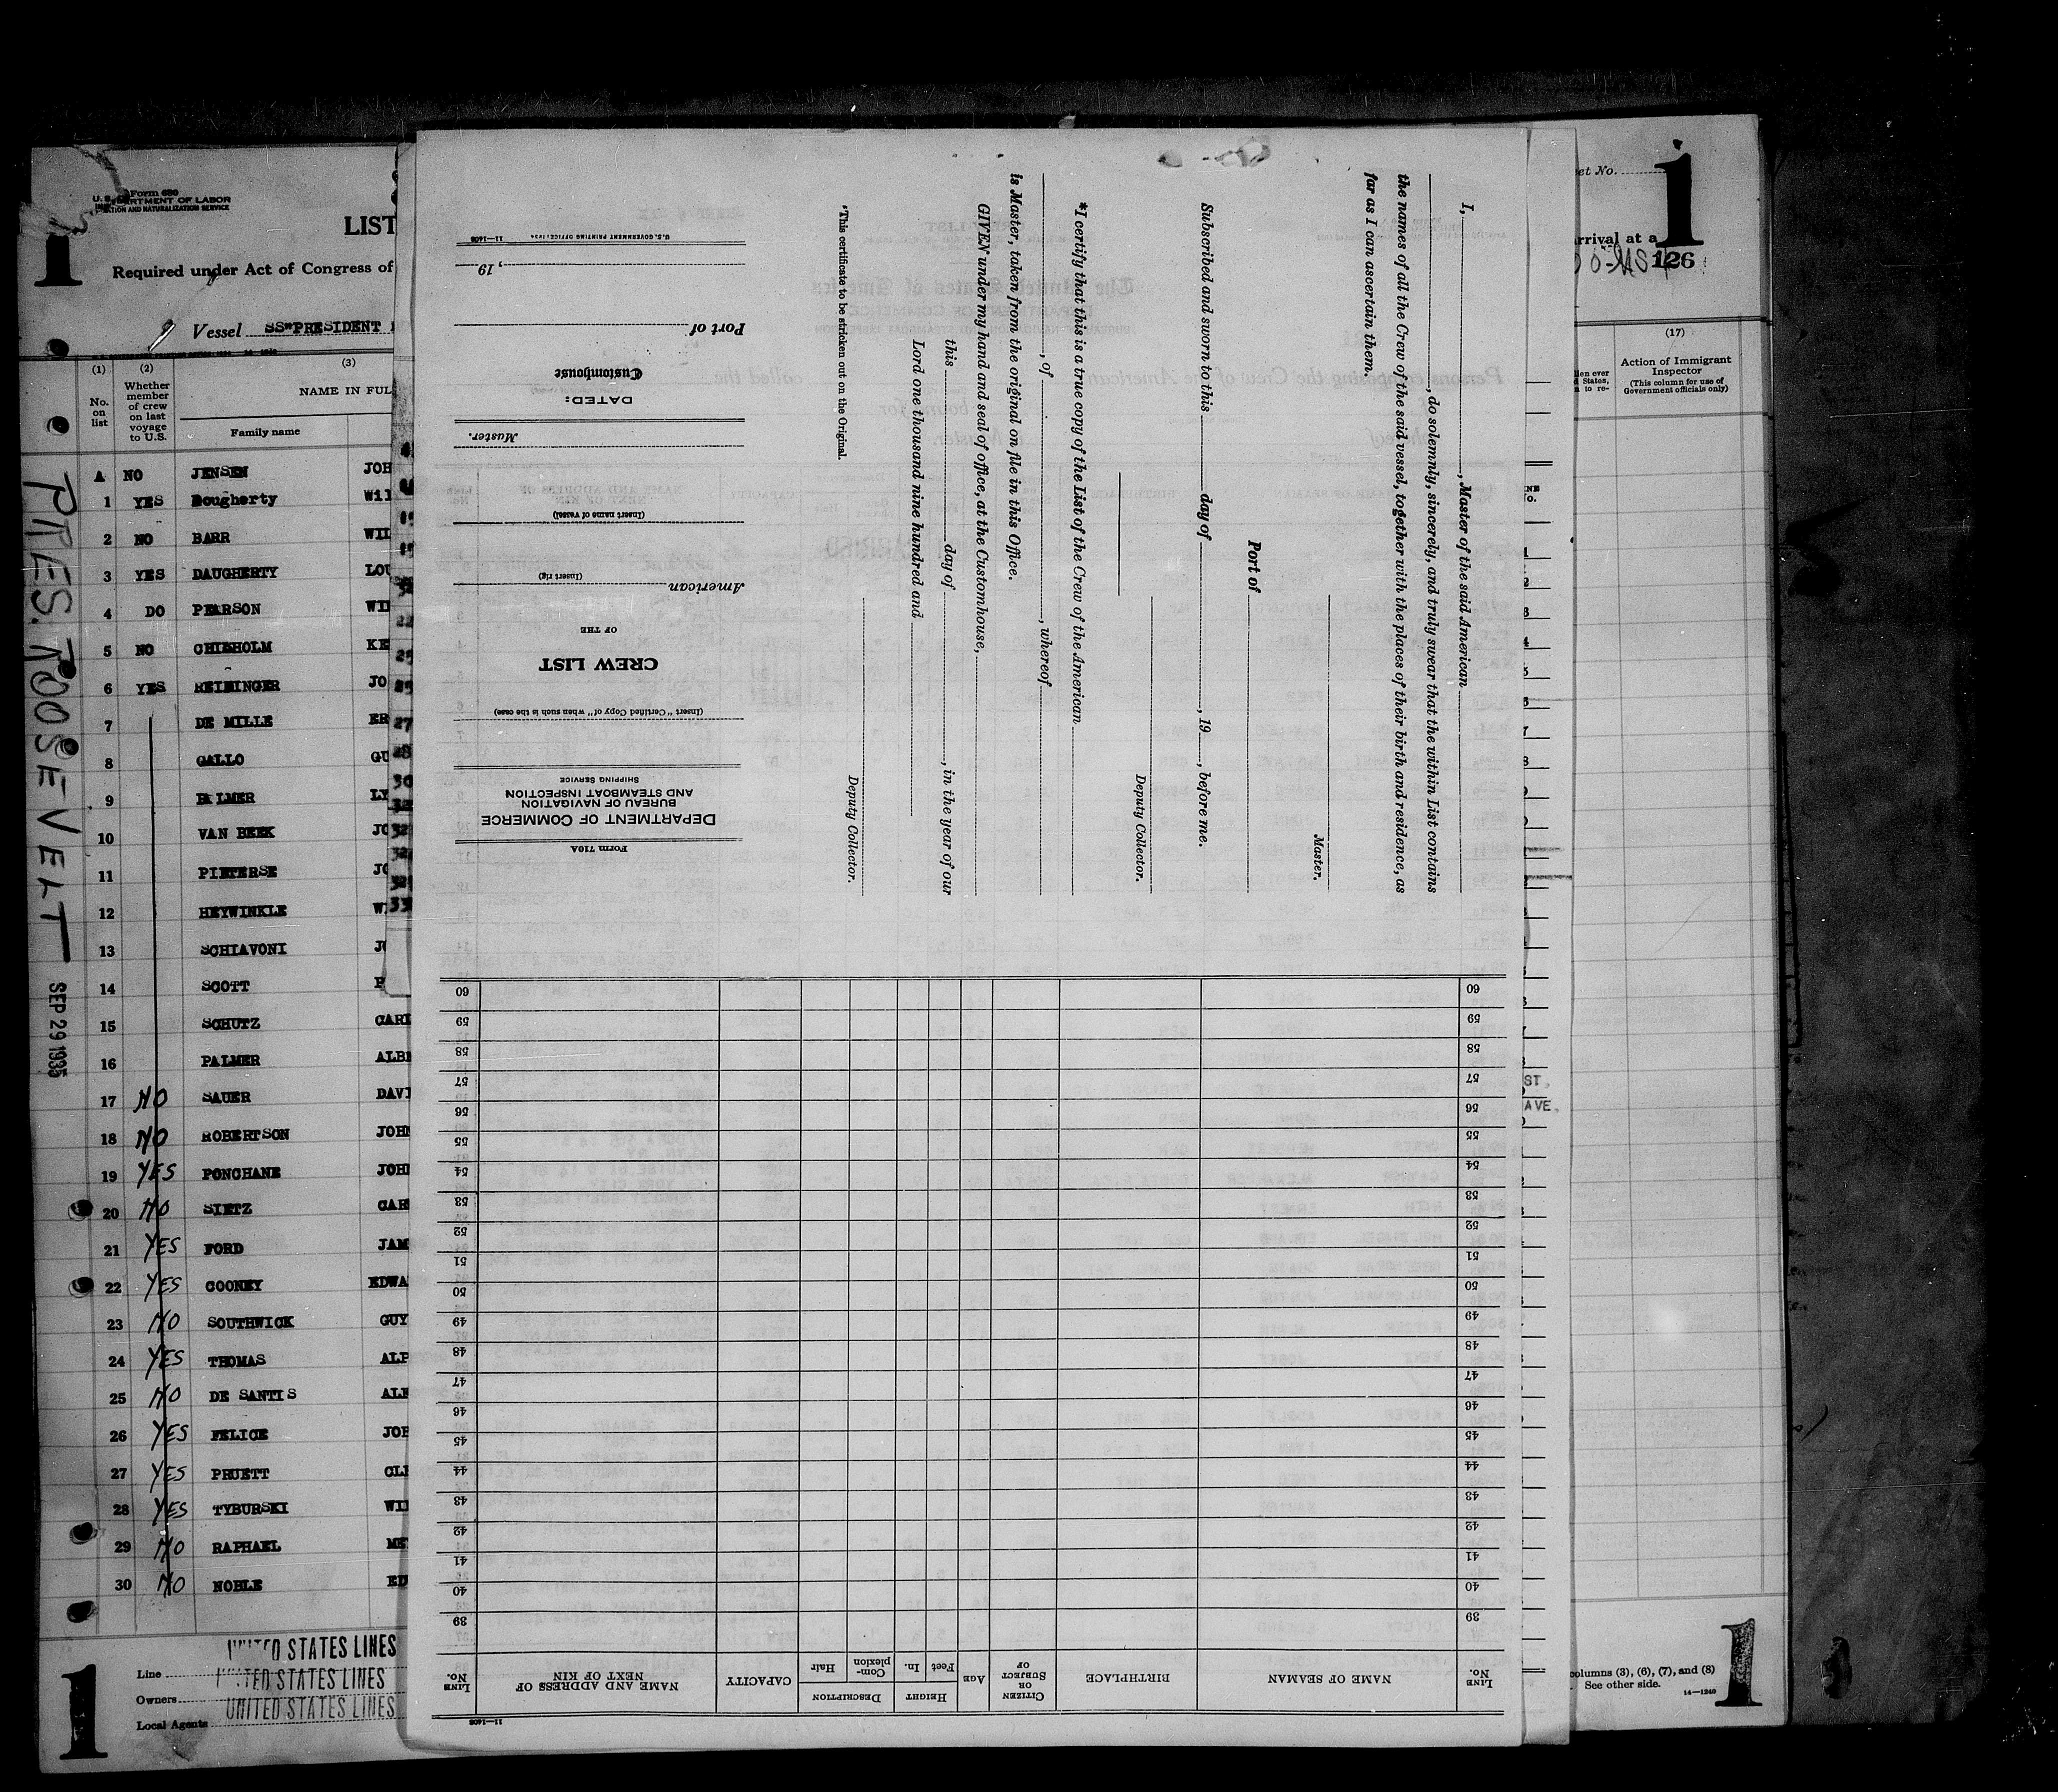 Form 680
U. S. DEPARTMENT OF LABOR
IMMIGRATION AND NATURALIZATION SERVICE
1
LIST
Required under Act of Congress of
Vessel SS"PRESIDENT
(1) (2) (3)
No. on list
Whether member of crew on last voyage to U.S.
NAME IN FUL
Family name
A NO JENSEN JOH
1 YES Dougherty Wil
2 NO BARR WIL
3 YES DAUGHERTY LOU
4 DO PEARSON WIL
5 NO CHISHOLM KE
6 YES REININGER JO
7 DE MILLE ER
8 GALLO GU
9 BILMER LY
10 VAN BEEK JO
11 PIETERSE JO
12 HEYWINKLE W
13 SCHIAVONI JO
14 SCOTT
15 SCHUTZ CARL
16 PALMER ALBE
17 NO SAUER DAVI
18 NO ROBERTSON JOHN
19 YES PONCHANE JOH
20 NO SIETZ CAR
21 YES FORD JAM
22 YES COONEY EDWA
23 NO SOUTHWICK GUY
24 YES THOMAS ALF
25 NO DE SANTIS ALF
26 YES FELICE JOE
27 YES PRUETT CLI
28 YES TYBURSKI WIL
29 NO RAPHAEL
30 NO NOBLE ED
Line UNITED STATES LINES
Owners UNITED STATES LINES
Local Agents UNITED STATES LINES
1
PRES. ROOSEVELT
SEP 29 1935
I, , Master of the said American
, do solemnly, sincerely, and truly swear that the within List contains
the names of all the Crew of the said vessel, together with the places of their birth and residence, as
far as I can ascertain them.
Master.
Port of
Subscribed and sworn to this day of , 19 , before me.
Deputy Collector.
*I certify that this is a true copy of the List of the Crew of the American
, of , whereof
is Master, taken from the original on file in this Office.
GIVEN under my hand and seal of office, at the Customhouse,
this day of , in the year of our
Lord one thousand nine hundred and
Deputy Collector.
*This certificate to be stricken out on the Original.
Form 710A
DEPARTMENT OF COMMERCE
BUREAU OF NAVIGATION
AND STEAMBOAT INSPECTION
SHIPPING SERVICE
(Insert "Certified Copy of" when such is the case)
CREW LIST
OF THE
American
(Insert rig)
(Insert name of vessel)
Master.
DATED:
Customhouse
Port of
, 19
11—1408 U.S. GOVERNMENT PRINTING OFFICE: 1934
11—1408
LINE No.
NAME OF SEAMAN
BIRTHPLACE
CITIZEN OR SUBJECT OF
AGE
HEIGHT
Feet In.
DESCRIPTION
Complexion Hair
CAPACITY
NAME AND ADDRESS OF NEXT OF KIN
LINE No.
39 39
40 40
41 41
42 42
43 43
44 44
45 45
46 46
47 47
48 48
49 49
50 50
51 51
52 52
53 53
54 54
55 55
56 56
57 57
58 58
59 59
60 60
ST.
AVE.
eet No.
1
rrival at a
126
(17)
Action of Immigrant Inspector
(This column for use of Government officials only)
olumns (3), (6), (7), and (8)
See other side.
14—1240
1